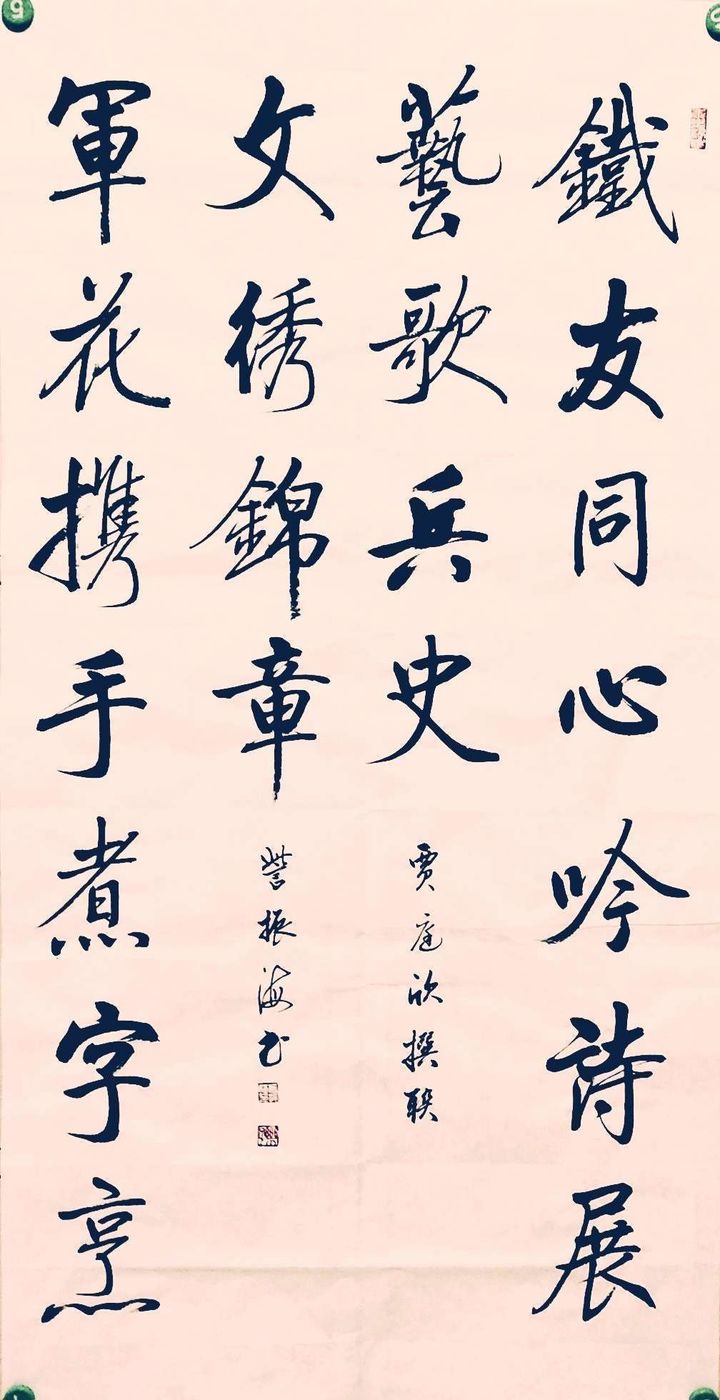 鐵友同心吟詩展
藝歌兵史
贾庭欣撰联
軍花携手煮字烹
文绣錦章
訾振海书